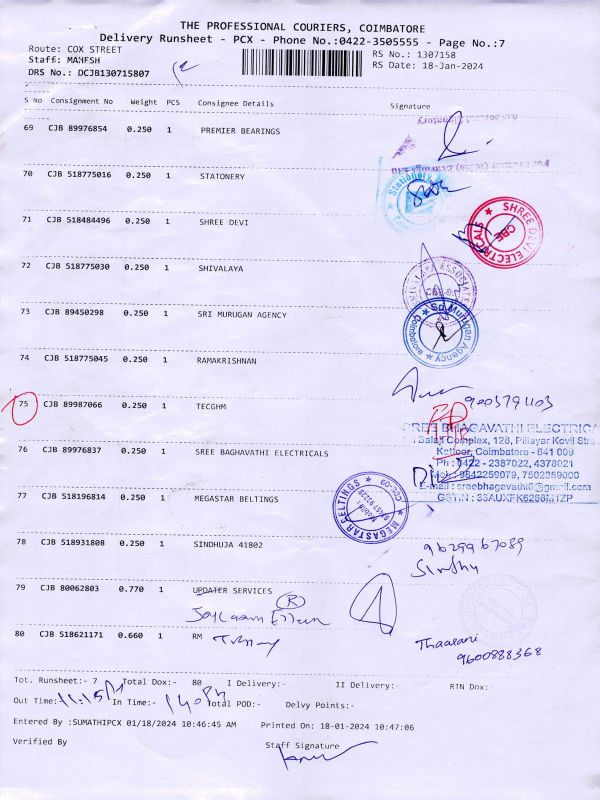 THE PROFESSIONAL COURIERS, COIMBATORE
Delivery Runsheet - PCX - Phone No.:0422-3505555 - Page No.:7
Route: COX STREET
RS No.: 1307158
Staff: MAHESH
RS Date: 18-Jan-2024
DRS No.: DCJB130715807
S No Consignment No Weight PCS Consignee Details Signature
69 CJB 89976854 0.250 1 PREMIER BEARINGS
70 CJB 518775016 0.250 1 STATONERY
Stationery
71 CJB 518484496 0.250 1 SHREE DEVI
SHREE DEVI ELECTRICALS
CBE
72 CJB 518775030 0.250 1 SHIVALAYA
SHIVALAYA ASSOCIATES
73 CJB 89450298 0.250 1 SRI MURUGAN AGENCY
Sri Murugan Agency
Coimbatore
74 CJB 518775045 0.250 1 RAMAKRISHNAN
75 CJB 89987066 0.250 1 TECGHM
9003791103
SREE BHAGAVATHI ELECTRICA
Balaji Complex, 128, Pillayar Kovil Stre
Kattoor, Coimbatore - 641 009
Ph : 0422 - 2387022, 4378021
76 CJB 89976837 0.250 1 SREE BAGHAVATHI ELECTRICALS
77 CJB 518196814 0.250 1 MEGASTAR BELTINGS
MEGASTAR BELTINGS
CBE-09
78 CJB 518931808 0.250 1 SINDHUJA 41802
9629967089
Sindhu
79 CJB 80062803 0.770 1 UPDATER SERVICES
80 CJB 518621171 0.660 1 RM
Thaarani
9600888368
Tot. Runsheet:- 7 Total Dox:- 80 I Delivery:- II Delivery:- RTN Dox:-
Out Time:- 11:15 In Time:- Total POD:- Delvy Points:-
Entered By :SUMATHIPCX 01/18/2024 10:46:45 AM Printed On: 18-01-2024 10:47:06
Verified By Staff Signature